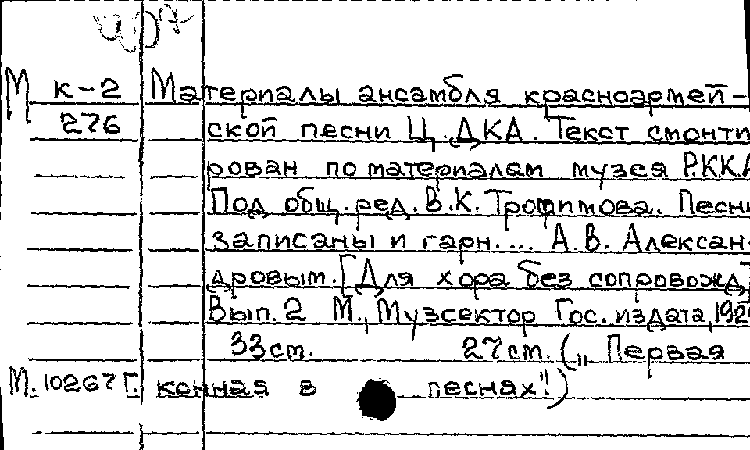 М к-2 Материалы ансамбля красноармей-
276 ской песни Ц.ДКА. Текст смонти
рован по материалам музея Р.ККА
Под общ.ред. В.К. Трофимова. Песни
записаны и гарн.... А.В. Алексан-
дровым. [Для хора без сопровожд.]
Вып. 2 М., Музсектор Гос. издата,
33 ст. 27 ст. („Первая
М. 10267 Г. конная в песнях".)